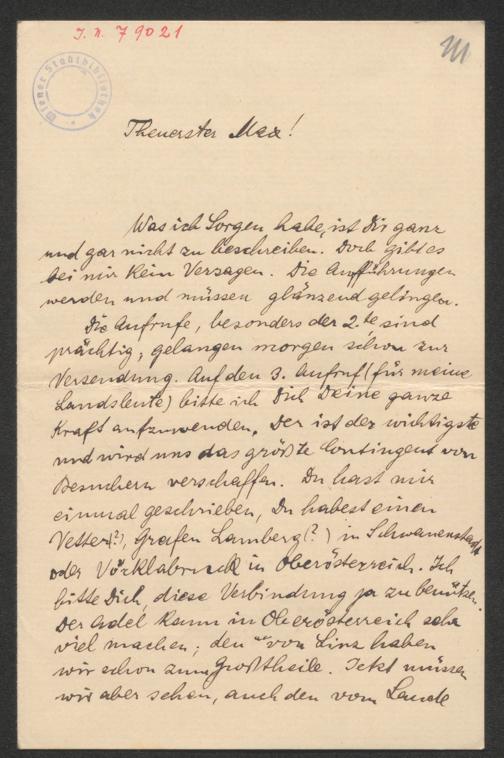 J. N. 79021
Wiener Stadtbibliothek
Theuerster Max!
Was ich Sorgen habe, ist Dir ganz
und gar nicht zu beschreiben. Doch gibt es
bei mir kein Verzagen. Die Aufführungen
werden und müssen glänzend gelingen.
Die Aufrufe, besonders der 2.te sind
prächtig, gelangen morgen schon zur
Versendung. Auf den 3. Aufruf (für meine
Landsleute) bitte ich Dich Deine ganze
Kraft aufzuwenden. Der ist der wichtigste
und wird uns das größte Contingent von
Besuchern verschaffen. Du hast mir
einmal geschrieben, Du habest einen
Vetter(?), Grafen Lamberg(?) in Schwanenstadt
oder Vöcklabruck in Oberösterreich. Ich
bitte Dich, diese Verbindung ja zu benützen.
Der Adel kann in Oberösterreich sehr
viel machen; den von Linz haben
wir schon zum Großtheile. Jetzt müssen
wir aber sehen, auch den vom Lande